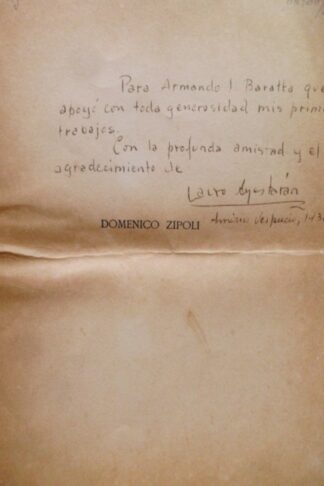 Para Armando I. Baratta que
apoyó con toda generosidad mis prime
trabajos.
Con la profunda amistad y el
agradecimiento de
Lauro Ayestarán
DOMENICO ZIPOLI